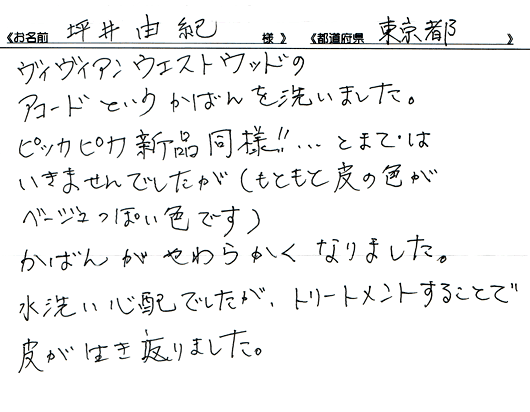 《お名前 坪井由紀 様》 《都道府県 東京都》
ヴィヴィアンウエストウッドの
アコードというかばんを洗いました。
ピッカピカ新品同様!!…とまでは
いきませんでしたが(もともと皮の色が
ベージュっぽい色です)
かばんがやわらかくなりました。
水洗い心配でしたが、トリートメントすることで
皮が生き返りました。